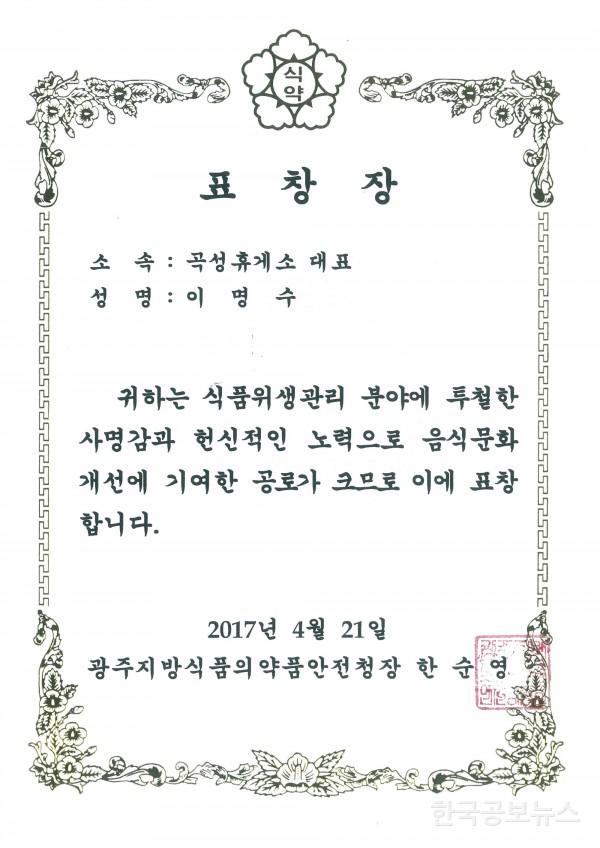 식
약
표 창 장
소 속 : 곡성휴게소 대표
성 명 : 이 명 수
귀하는 식품위생관리 분야에 투철한
사명감과 헌신적인 노력으로 음식문화
개선에 기여한 공로가 크므로 이에 표창
합니다.
2017년 4월 21일
광주지방식품의약품안전청장 한 순 영
한국공보뉴스